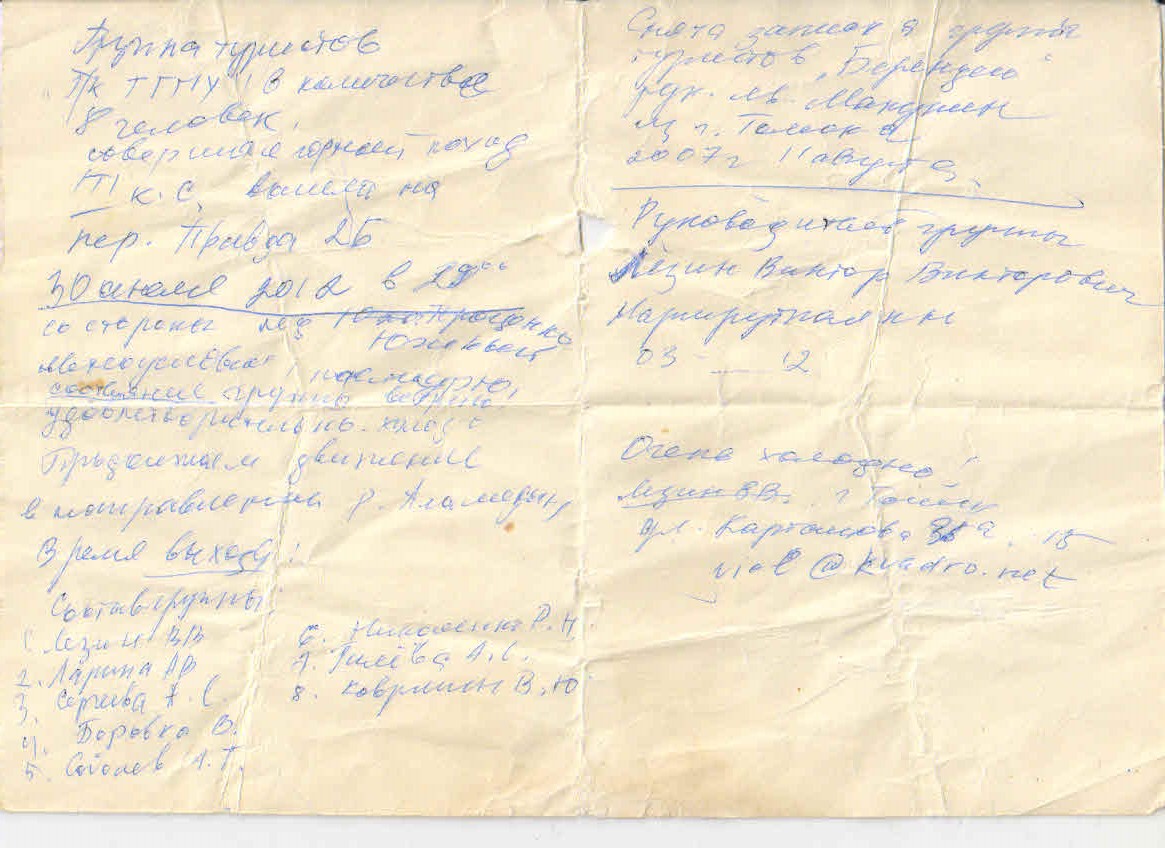 Группа туристов
т/к ТГПУ в количестве
8 человек,
совершая горный поход
к.с. вышла на
пер. Правда 2Б
30 июля 2012 в
со стороны лед. Южный
состояние группы
удовлетворительно.
Продолжаем движение
в направлении р. Аламедин,
Время выхода:
Состав группы:
1. Лезин ВВ
2. Ларина АВ
3. Сергеева А. С.
4. Боровко В.
5. Соболев А.Г.
6. Николаенко Р.Н.
7. Гилёва А.С.
8. Ковришин В.Ю.
Снята записка группы
туристов „Берендей“
рук. Манджин
из г. Томска
2007г 11 августа.
Руководитель группы
Лезин Виктор Викторович
Маршрутная кн
03 - __ 12
Очень холодно!
Лезин В.В. г Томск
ул. Карташова 15
@kvadro.net